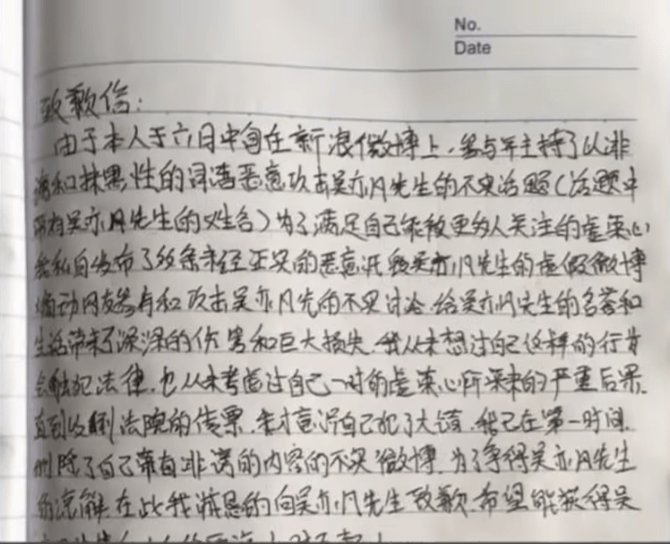 No.
Date
致歉信:
由于本人于六月中旬在新浪微博上,参与并主持了以诽
谤和抹黑性的词语恶意攻击吴亦凡先生的不实话题(话题中
带有吴亦凡先生的姓名)为了满足自己能被更多人关注的虚荣心
我私自发布了数条未经证实的恶意诋毁吴亦凡先生的虚假微博
煽动网友参与和攻击吴亦凡先的不实讨论.给吴亦凡先生的名誉和
生活带来了深深的伤害和巨大损失.我从未想过自己这样的行为
会触犯法律.也从未考虑过自己一时的虚荣心所带来的严重后果.
直到收到法院的传票.我才意识自己犯了大错.我已在第一时间.
删除了自己带有诽谤的内容的不实微博.为了争得吴亦凡先生
的谅解.在此我诚恳的向吴亦凡先生致歉.希望能获得吴